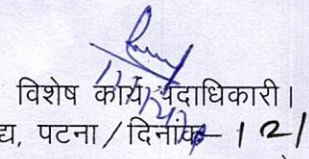 विशेष कार्य पदाधिकारी।
द्य, पटना / दिनांक— 121